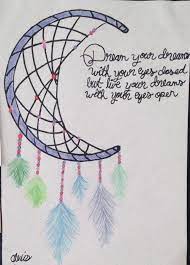 Dream your dreams
with your eyes closed
but live your dreams
with your eyes open